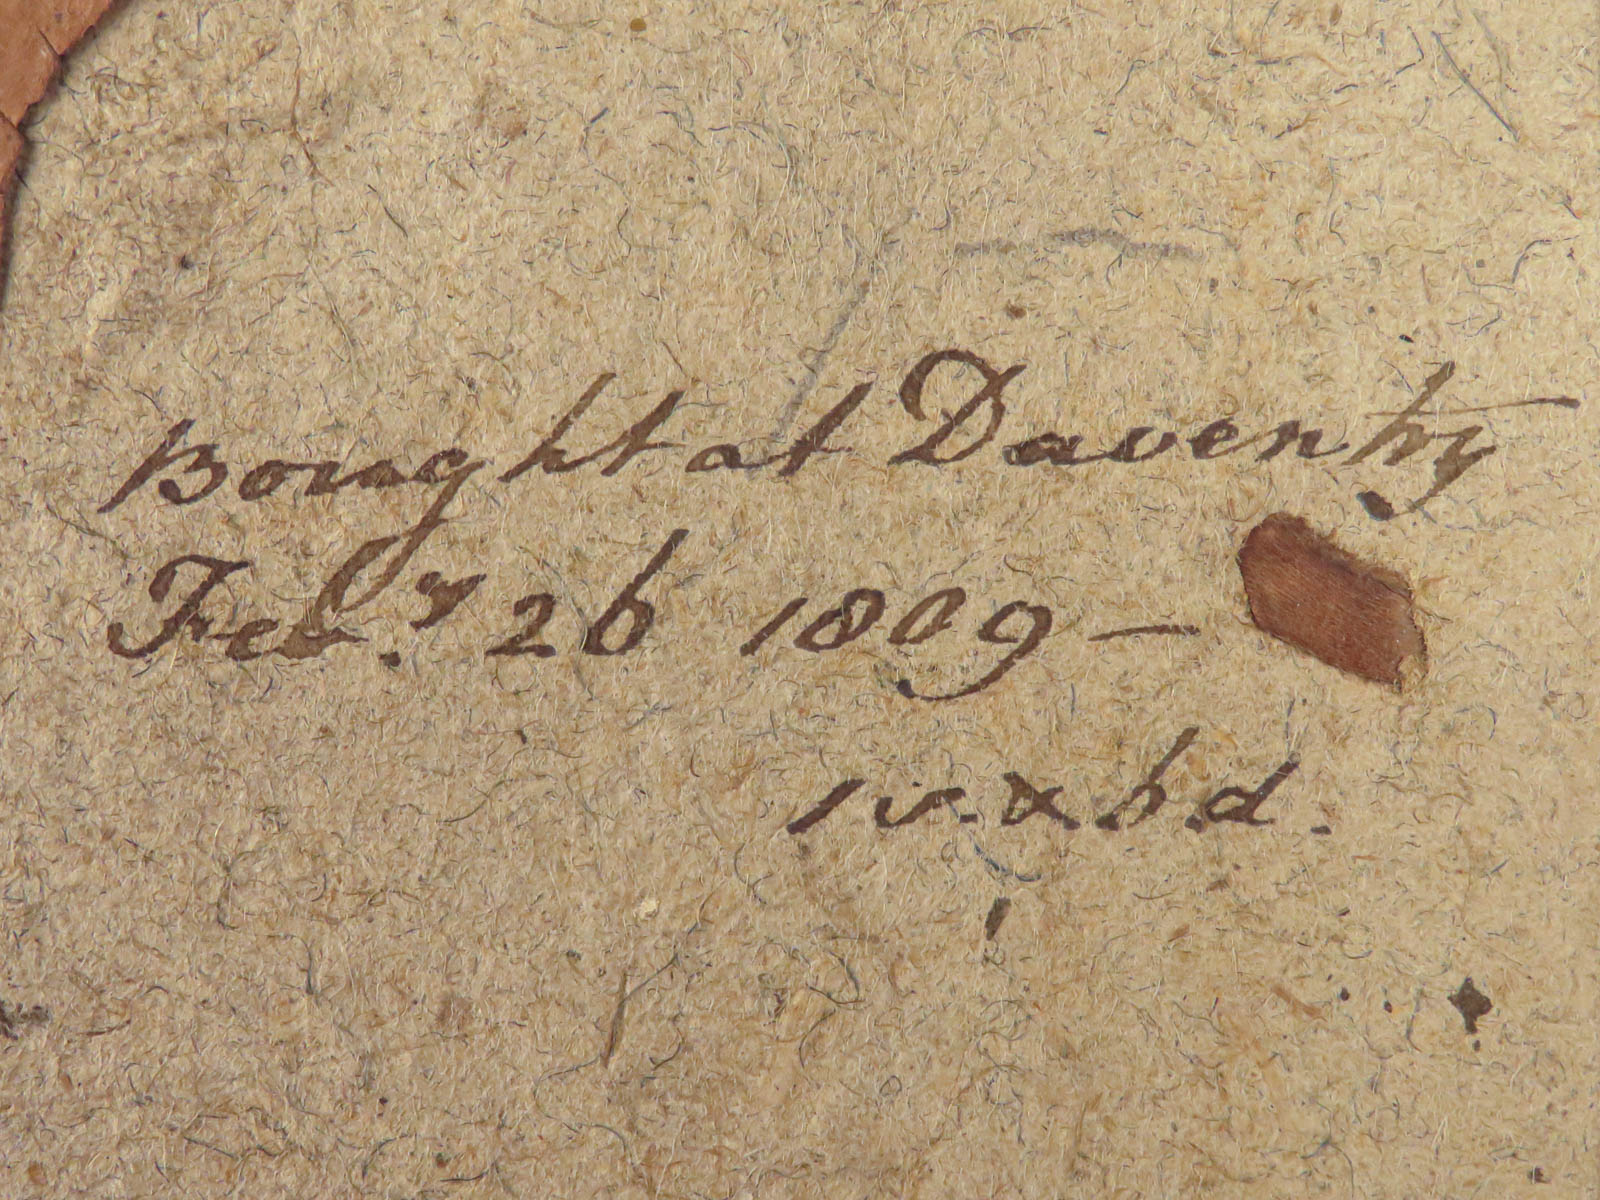 Bought at Daventry
Feb.y 26 1809 —
1s. & 6.d.